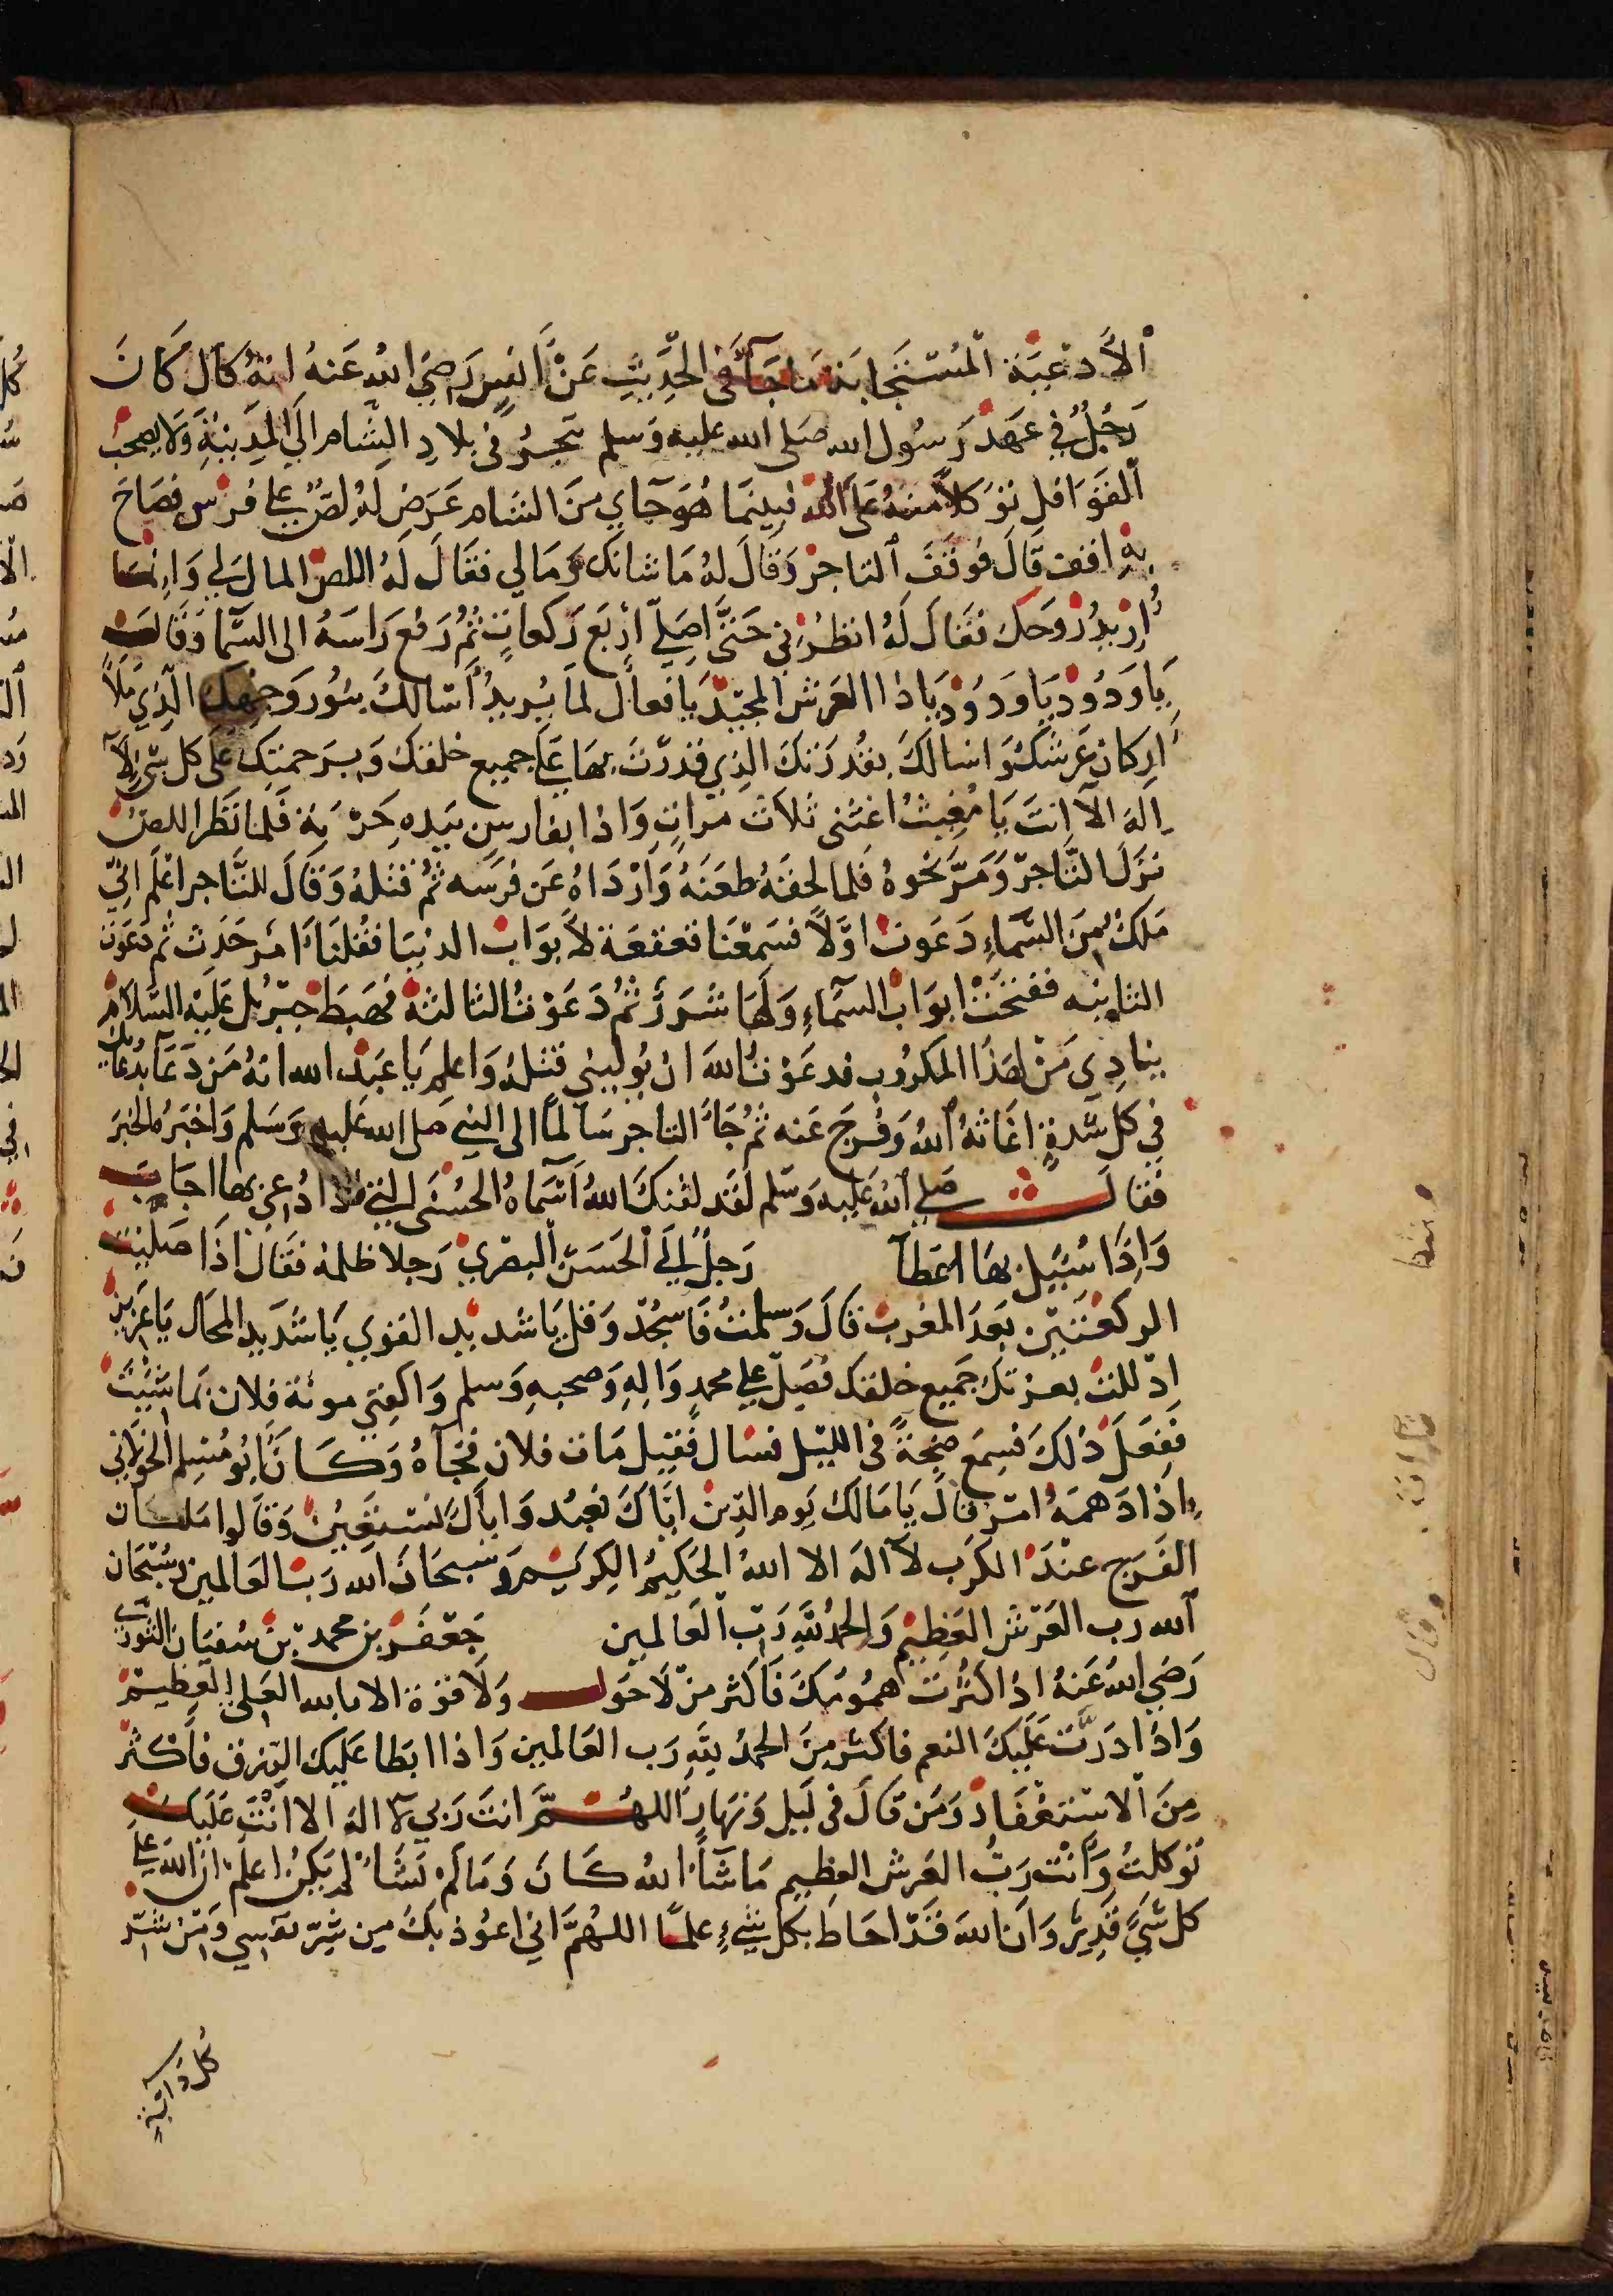 الأدعية المستجابة ما جآء في الحديث عن أنس رضي الله عنه انه قال كان
رجل في عهد رسول الله صلى الله عليه وسلم تجر في بلاد الشام الي المدينة ولا يصحب
القوافل توكلا منه على الله فبينما هو جاي من الشام عرض له لص على فرس فصاح
به اقف قال فوقف التاجر وقال له ما شانك ومالي فقال له اللص المال لي وانما
أريد روحك فقال له انظرني حتى اصلي اربع ركعات ثم رفع راسه الى السما وقال
يا ودود يا ودود يا ذا العرش المجيد يا فعال لما يريد أسالك بنور وجهك الذي ملأ
اركان عرشك واسالك بقدرتك الذي قدرت بها على جميع خلقك وبرحمتك على كل شي لآ
اله الا انت يا مغيث اغثني ثلاث مرات واذا بفارس بيده حربة فلما نظر اللص
نزل التاجر ومر نحوه فلما لحقه طعنه وارداه عن فرسه ثم قتله وقال للتاجر اعلم اني
ملك من السماء دعوت اولا فسمعنا قعقعة لابواب الدنيا فقلنا امر حدث ثم دعوت
الثانيه ففتحت ابواب السماء ولها شرر ثم دعوت الثالثة فهبط جبريل عليه السلام
ينادي من لهذا المكروب فدعوت الله ان يوليني قتله واعلم يا عبد الله انه من دعا بدعائك
في كل شدة اغاثه الله وفرج عنه ثم جاء التاجر سالما الى النبي صلى الله عليه وسلم واخبره الخبر
فقال صلي الله عليه وسلم لقد لقنك الله أسماه الحسنى التي اذا دعي بها اجاب
واذا سئيل بها اعطا رجل إلي الحسن البصري رجلا ظلمه فقال اذا صليت
الركعتين بعد المغرب قال وسلمت فاسجد وقل يا شديد القوي يا شديد المحال يا عزيز
اذللت بعزتك جميع خلقك فصل علي محمد واله وصحبه وسلم واكفني مونة فلان بما شيئت
ففعل ذلك فسمع صيحة في الليل فسال فقيل مات فلان فجآه وكان أبو مسلم الخولاني
اذا دهمه امر قال يا مالك يوم الدين اياك نعبد واياك نستعين وقالوا
الفرج عند الكرب لآ اله الا الله الحكيم الكريم وسبحان الله رب العالمين وسبحان
الله رب العرش العظيم والحمد لله رب العالمين جعفر بن محمد بن سفيان الثوري
رضي الله عنه اذا كثرت همومك فاكثر من لا حول ولا قوة الا بالله العلي العظيم
واذا ادرت عليك النعم فاكثر من الحمد لله رب العالمين واذا ابطا عليك الرزق فاكثر
من الاستغفار ومن قال في ليل ونهار اللهم انت ربي لا اله الا انت عليك
توكلت وانت رب العرش العظيم ما شآء الله كان وما لم نشاء لم يكن اعلم ان الله على
كل شي قدير وان الله قد احاط بكل شيء علما اللهم اني اعوذ بك من شر نفسي ومن شر
كل دابة